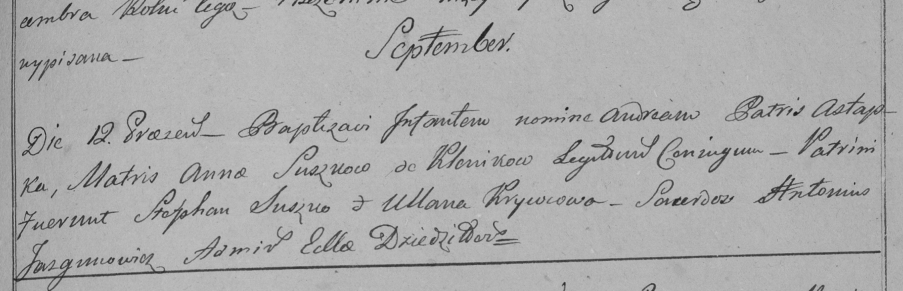 ambra
wypisana –
September.
Die 12. Praesent – Baptizavi Infantem nomine Andream Patris Astap-
ka, Matris Annae Suszkow de Klenikow Legittim Coniugum – Patrini
Fuerunt Stephan Suszko & Ullana Krywcowa – Sacerdos Antonius
Jazgunowicz Admir Eccl